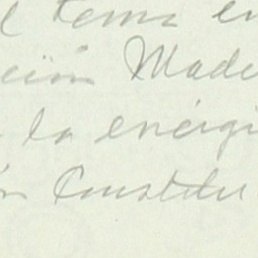 l tema en
ción Made
la energi
n Constitu